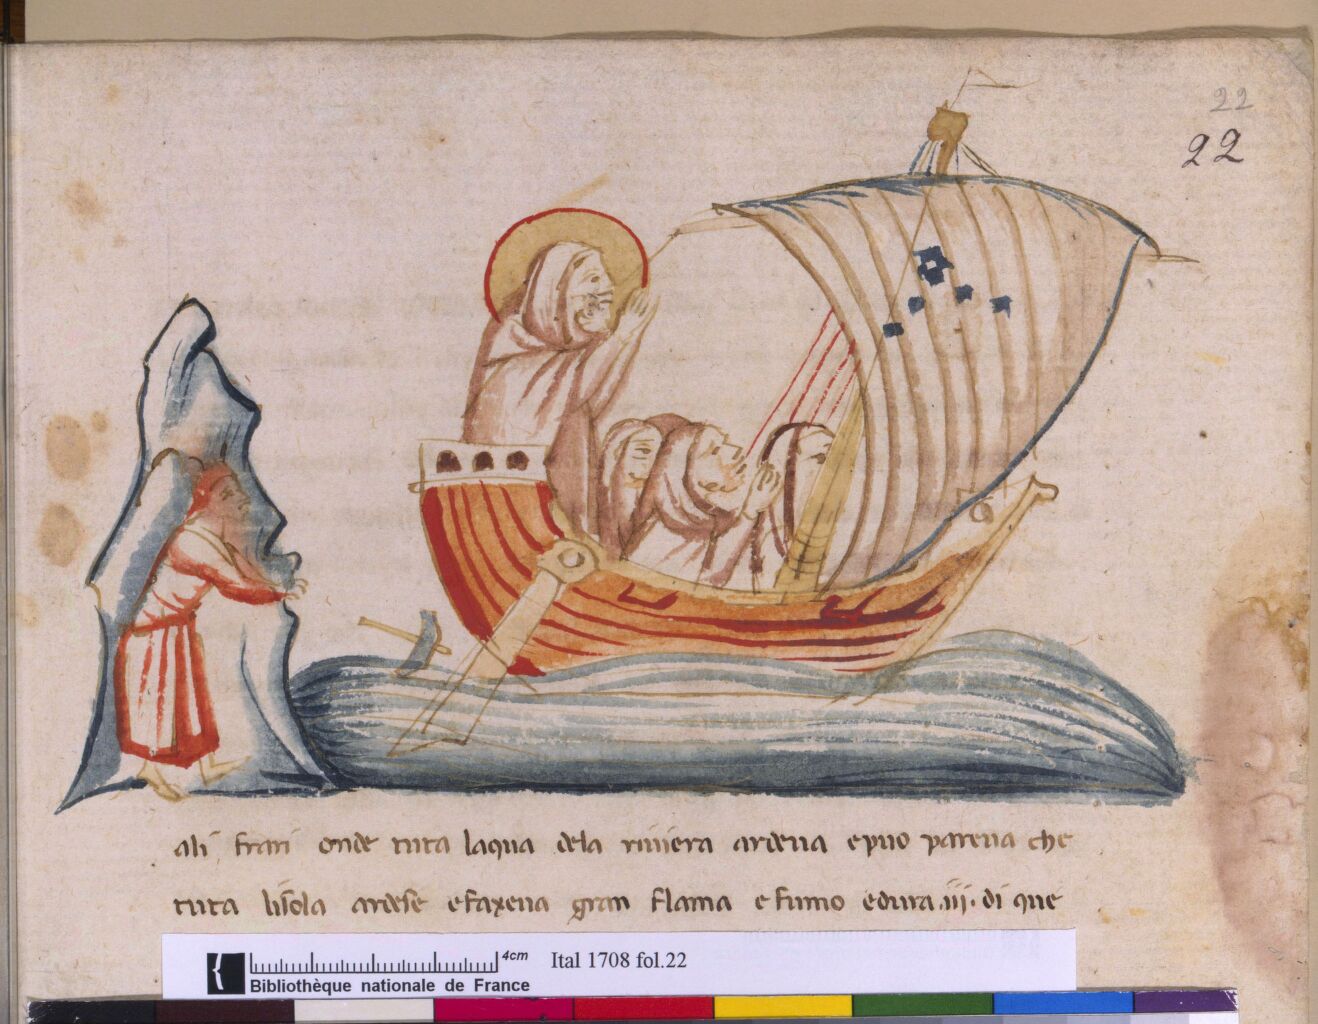 22
22
ali frari onde tuta laqua dela riuiera ardeua e puo pareua che
tuta lisola ardese e faxeua gran flama e fumo e dura .iij. di que
4cm
Ital 1708 fol.22
Bibliothèque nationale de France